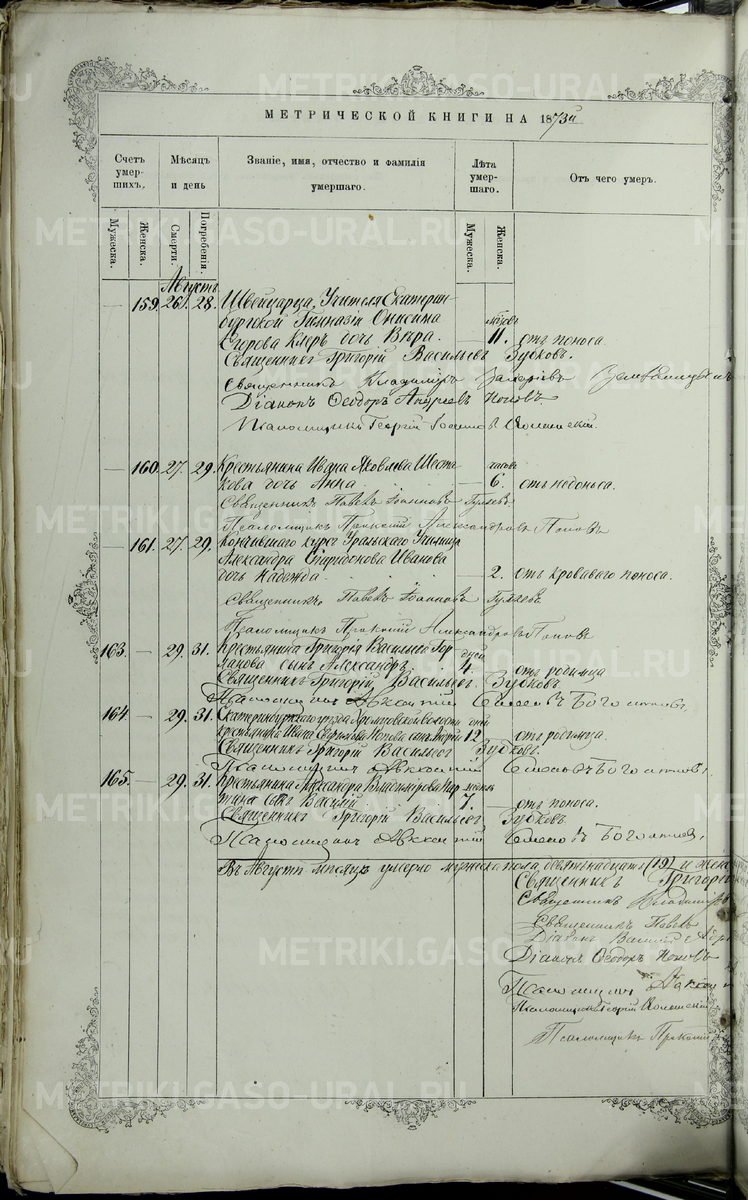 METRIKI.GASO-URAL.RU
МЕТРИЧЕСКОЙ КНИГИ НА 1873й
Счетъ умершихъ. Мѣсяцъ и день Званіе, имя, отчество и фамилія умершаго. Лѣта умершаго. Отъ чего умеръ.
Мужеска. Женска. Смерти. Погребенія. Мужеска. Женска.
Августъ
— 159. 26. 28. Швейцарца, Учителя Екатерин-
бургской Гимназіи Онисима мѣсяцъ
Егорова Клеръ дочь Вѣра. — 11. отъ поноса.
Священникъ Григорій Васильевъ Зубковъ.
Священникъ Владиміръ Валеріевъ
Діаконъ Ѳеодоръ Андреевъ Поповъ.
Псаломщикъ Георгій Іоанновъ
— 160. 27. 29. Крестьянина Ивана Яковлева Шеста- часовъ
кова дочь Анна. — 6. отъ недоноса.
Священникъ Павелъ Іоанновъ Гуляевъ
Псаломщикъ Прокопій Александровъ Поповъ
— 161. 27. 29. Кончившаго курсъ Уральскаго Училища
Александра Спиридонова Иванова
дочь Надежда. — 2. отъ кроваваго поноса.
Священникъ Павелъ Іоанновъ Гуляевъ
Псаломщикъ Прокопій Александровъ Поповъ
163. — 29. 31. Крестьянина Григорія Васильева Гор- дней
сынъ Александръ. 4. — отъ родимца
Священникъ Григорій Васильевъ Зубковъ.
Псаломщикъ Авксентій Семеновъ Богомоловъ
164. — 29. 31. Екатеринбургскаго уѣзда Арамильской волости дней
крестьянина Ивана Попова сынъ Андрей 12. отъ родимца.
Священникъ Григорій Васильевъ Зубковъ.
Псаломщикъ Авксентій Семеновъ Богомоловъ.
165. — 29. 31. Крестьянина Александра Владимірова мѣсяцъ
сынъ Василій 7. — отъ поноса.
Священникъ Григорій Васильевъ Зубковъ
Псаломщикъ Авксентій Семеновъ Богомоловъ.
Въ Августѣ мѣсяцѣ умерло мужеска пола девятнадцать (19) и женс
Священникъ Григорій
Священникъ Владиміръ
Священникъ Павелъ
Діаконъ Василій
Діаконъ Ѳеодоръ Поповъ
Псаломщикъ
Псаломщикъ Георгій
Псаломщикъ Прокопій